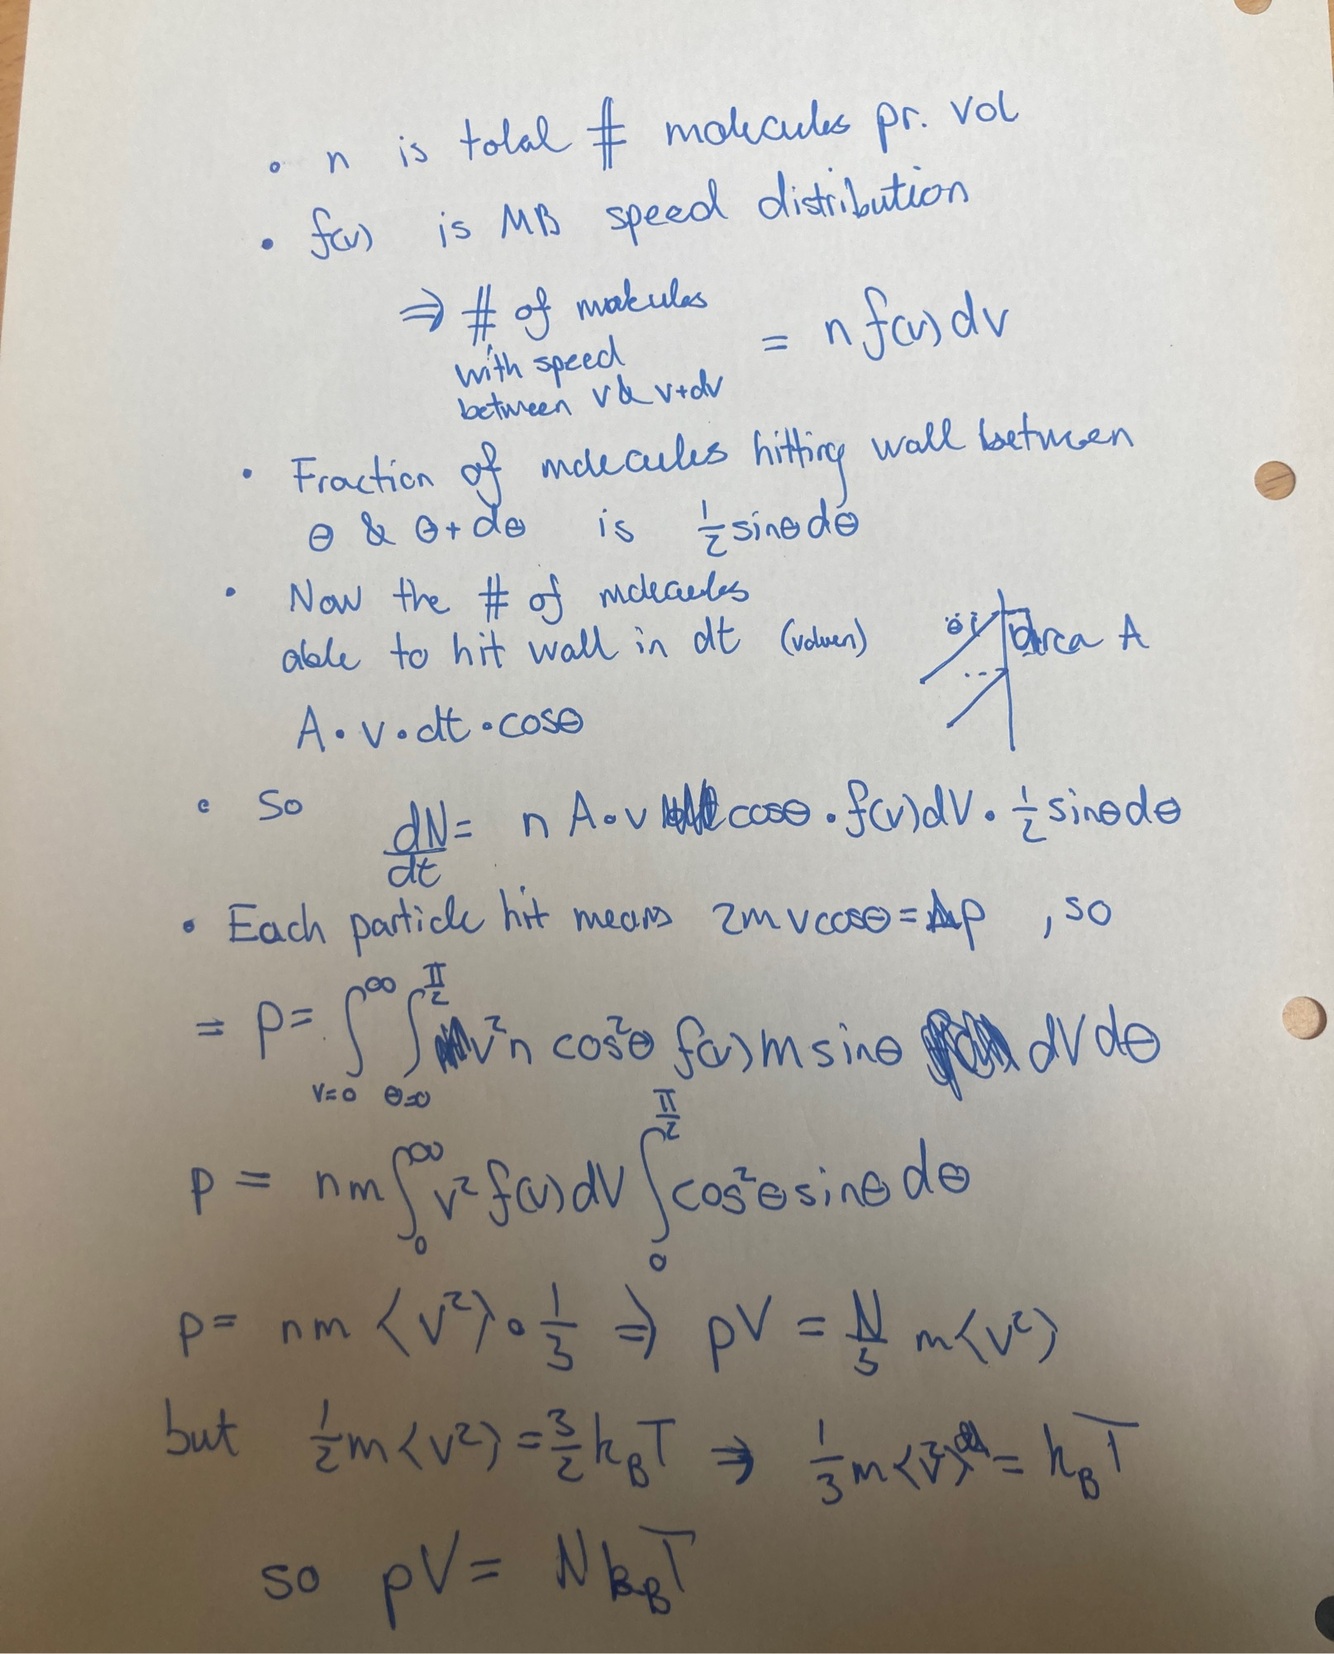 • n is total # molecules pr. vol
• f(v) is MB speed distribution
⇒ # of molecules
with speed
between v & v+dv
= n f(v) dv
• Fraction of molecules hitting wall between
θ & θ+dθ is 1/2 sinθ dθ
• Now the # of molecules
able to hit wall in dt
θ
area A
A·v·dt·cosθ
• So dN/dt = n A·v cosθ · f(v)dV · 1/2 sinθ dθ
• Each particle hit means 2mvcosθ = Δp , so
= p = ∫_{v=0}^{∞} ∫_{θ=0}^{π/2} v²n cos²θ f(v) m sinθ dV dθ
p = nm ∫_0^∞ v² f(v) dV ∫_0^{π/2} cos²θ sinθ dθ
p = nm ⟨v²⟩ · 1/3 ⇒ pV = N/3 m⟨v²⟩
but 1/2 m⟨v²⟩ = 3/2 k_B T ⇒ 1/3 m⟨v²⟩ = k_B T
so pV = N k_B T